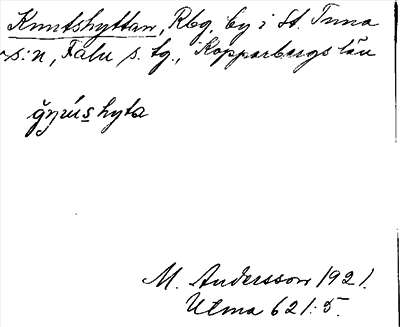 Knutshyttan, Rbg, by i St. Tuna
s:n, Falu s. tg., Kopparbergs län
hyta
M. Andersson 1921.
Ulma 621:5.